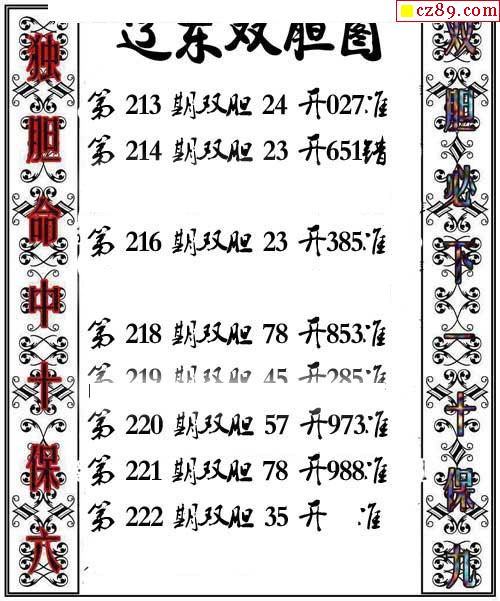 cz89.com
辽东双胆图
独胆命中十保六
第 213 期双胆 24 开027准
第 214 期双胆 23 开651错
第 216 期双胆 23 开385准
第 218 期双胆 78 开853准
第 219 期双胆 45 开285准
第 220 期双胆 57 开973准
第 221 期双胆 78 开988准
第 222 期双胆 35 开 准
双胆必下一十保九